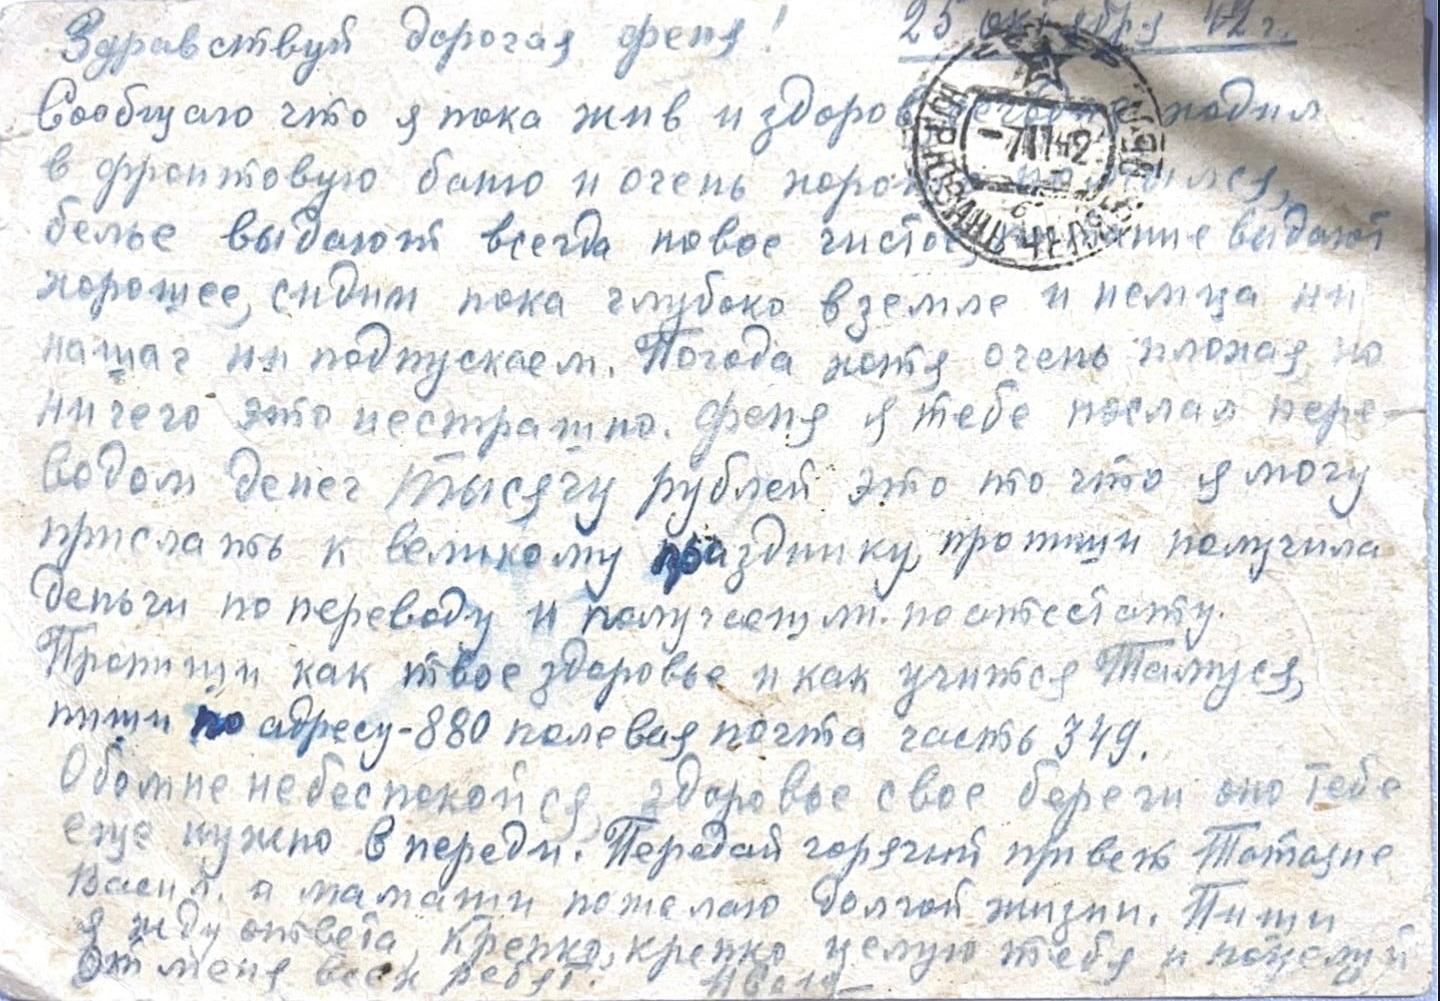 Здравствуй дорогая Феня! 25 октября 42 г.
Сообщаю что я пока жив и здоров, ходил
в фронтовую баню и очень
белье выдают всегда новое чистое, выдают
хорошее, сидим пока глубоко в земле и немца ни
на шаг ни подпускаем. Погода хотя очень плохая, но
ничего это нестрашно. Феня я тебе послал пере-
водом денег тысячу рублей это то что я могу
прислать к великому празднику, пропиши получила
деньги по переводу и получаеш ли по атестату.
Пропиши как твое здоровье и как учится Тамуся,
пиши по адресу-880 полевая почта часть 349.
Обо мне не беспокойся, здоровье свое береги оно тебе
еще нужно в переди. Передай горячий привет
Васил. а мамаши пожелаю долгой жизни. Пиши
я жду ответа, Крепко, крепко целую тебя и поцелуй
от меня всех ребят.
-7 11 42